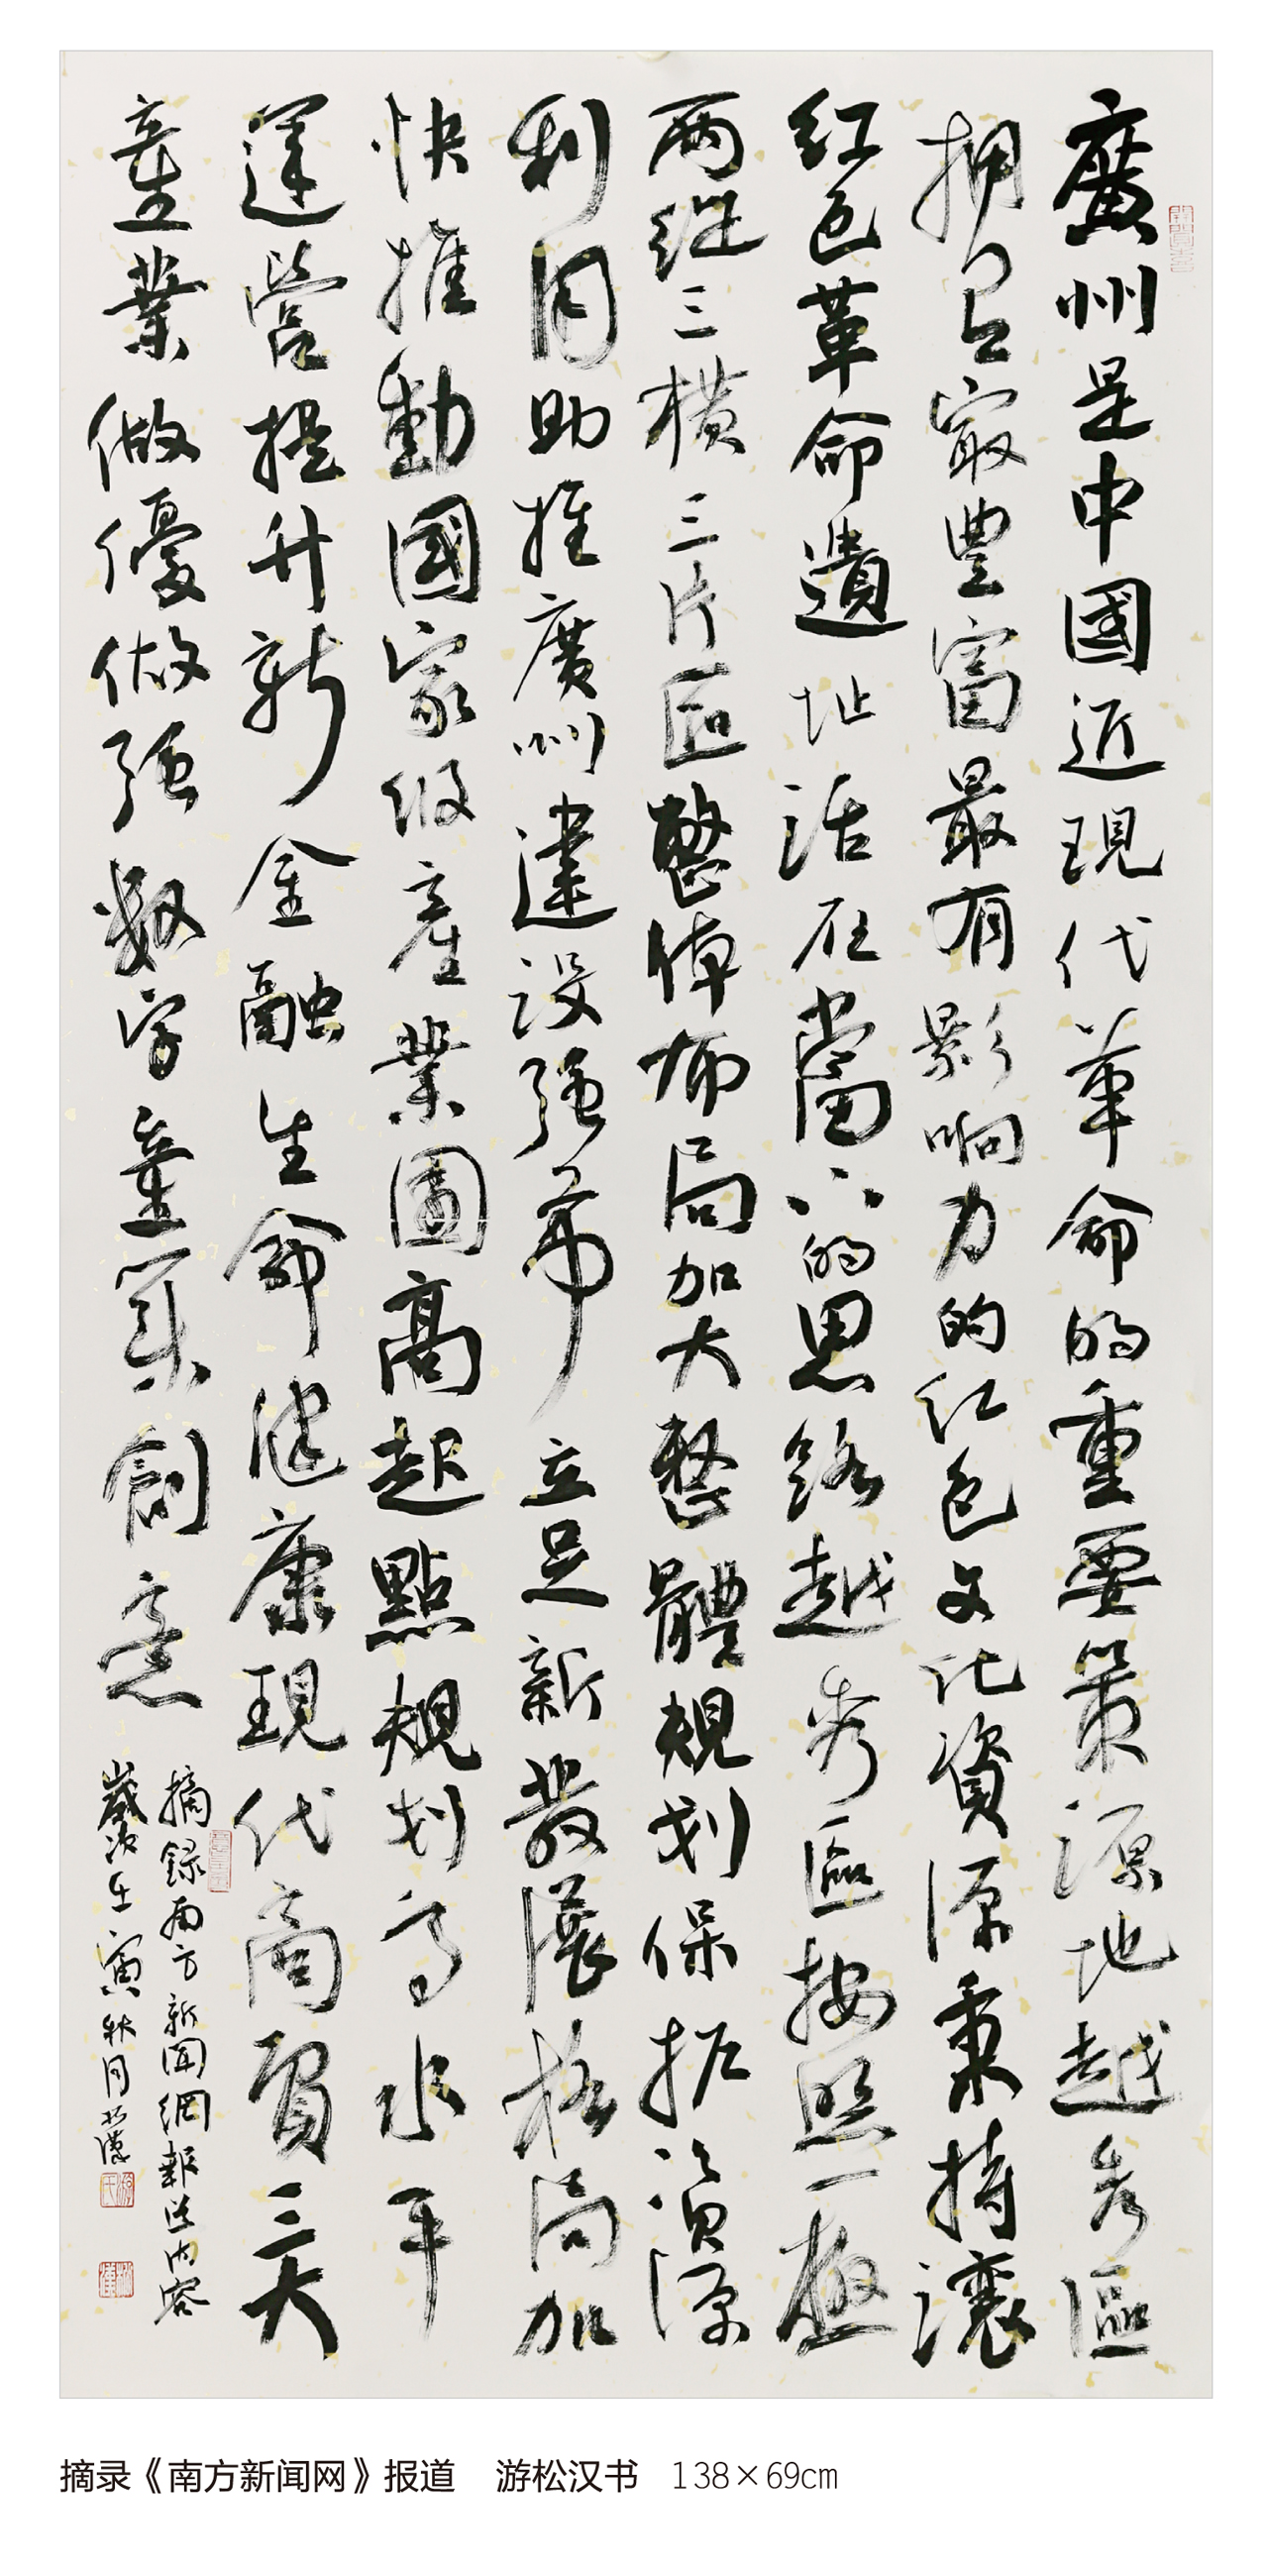 廣州是中國近現代革命的重要策源地越秀區
擁有最豐富最有影响力的红色文化資源秉持讓
红色革命遺址活在當下的思路越秀區按照一極
两纵三橫三片區整体布局加大整體規划保护資源
利用助推廣州建设强市立足新發展格局加
快推動國家级產業園高起點規划高水平
運營提升新金融生命健康現代商貿三大
產業做優做强数字產業創意
摘録南方新聞網報道内容
歲次壬寅秋月松漢
摘录《南方新闻网》报道 游松汉书 138×69cm